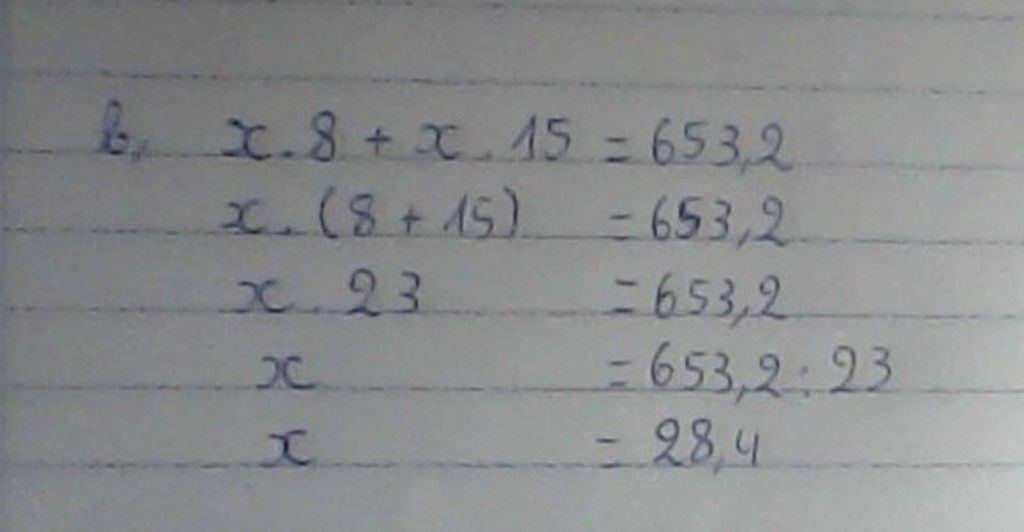 b, x . 8 + x . 15 = 653,2
x . (8 + 15) = 653,2
x . 23 = 653,2
x = 653,2 : 23
x = 28,4